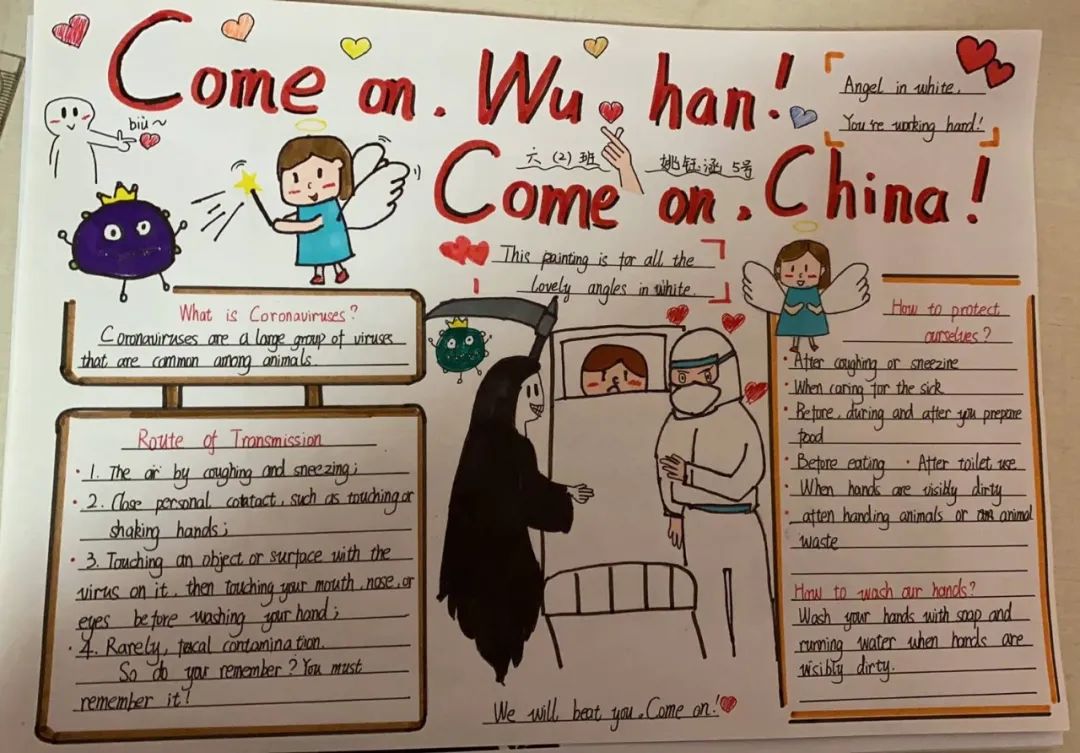 Come on. Wu han!
Angel in white.
You're working hard!
biù~
六(2)班 姚钰涵 5号
Come on, China!
This painting is for all the
lovely angles in white.
What is Coronaviruses?
Coronaviruses are a large group of viruses
that are common among animals.
Route of Transmission
1. The air by coughing and sneezing;
2. Close personal contact, such as touching or
shaking hands;
3. Touching an object or surface with the
virus on it, then touching your mouth, nose, or
eyes before washing your hand;
4. Rarely, fecal contamination.
So do you remember? You must
remember it!
We will beat you. Come on!
How to protect
ourselves?
· After coughing or sneezine
· When caring for the sick
· Before, during and after you prepare
food
· Before eating · After toilet use
· When hands are visibly dirty
· aften handing animals or animal
waste
How to wash our hands?
Wash your hands with soap and
running water when hands are
visibly dirty.